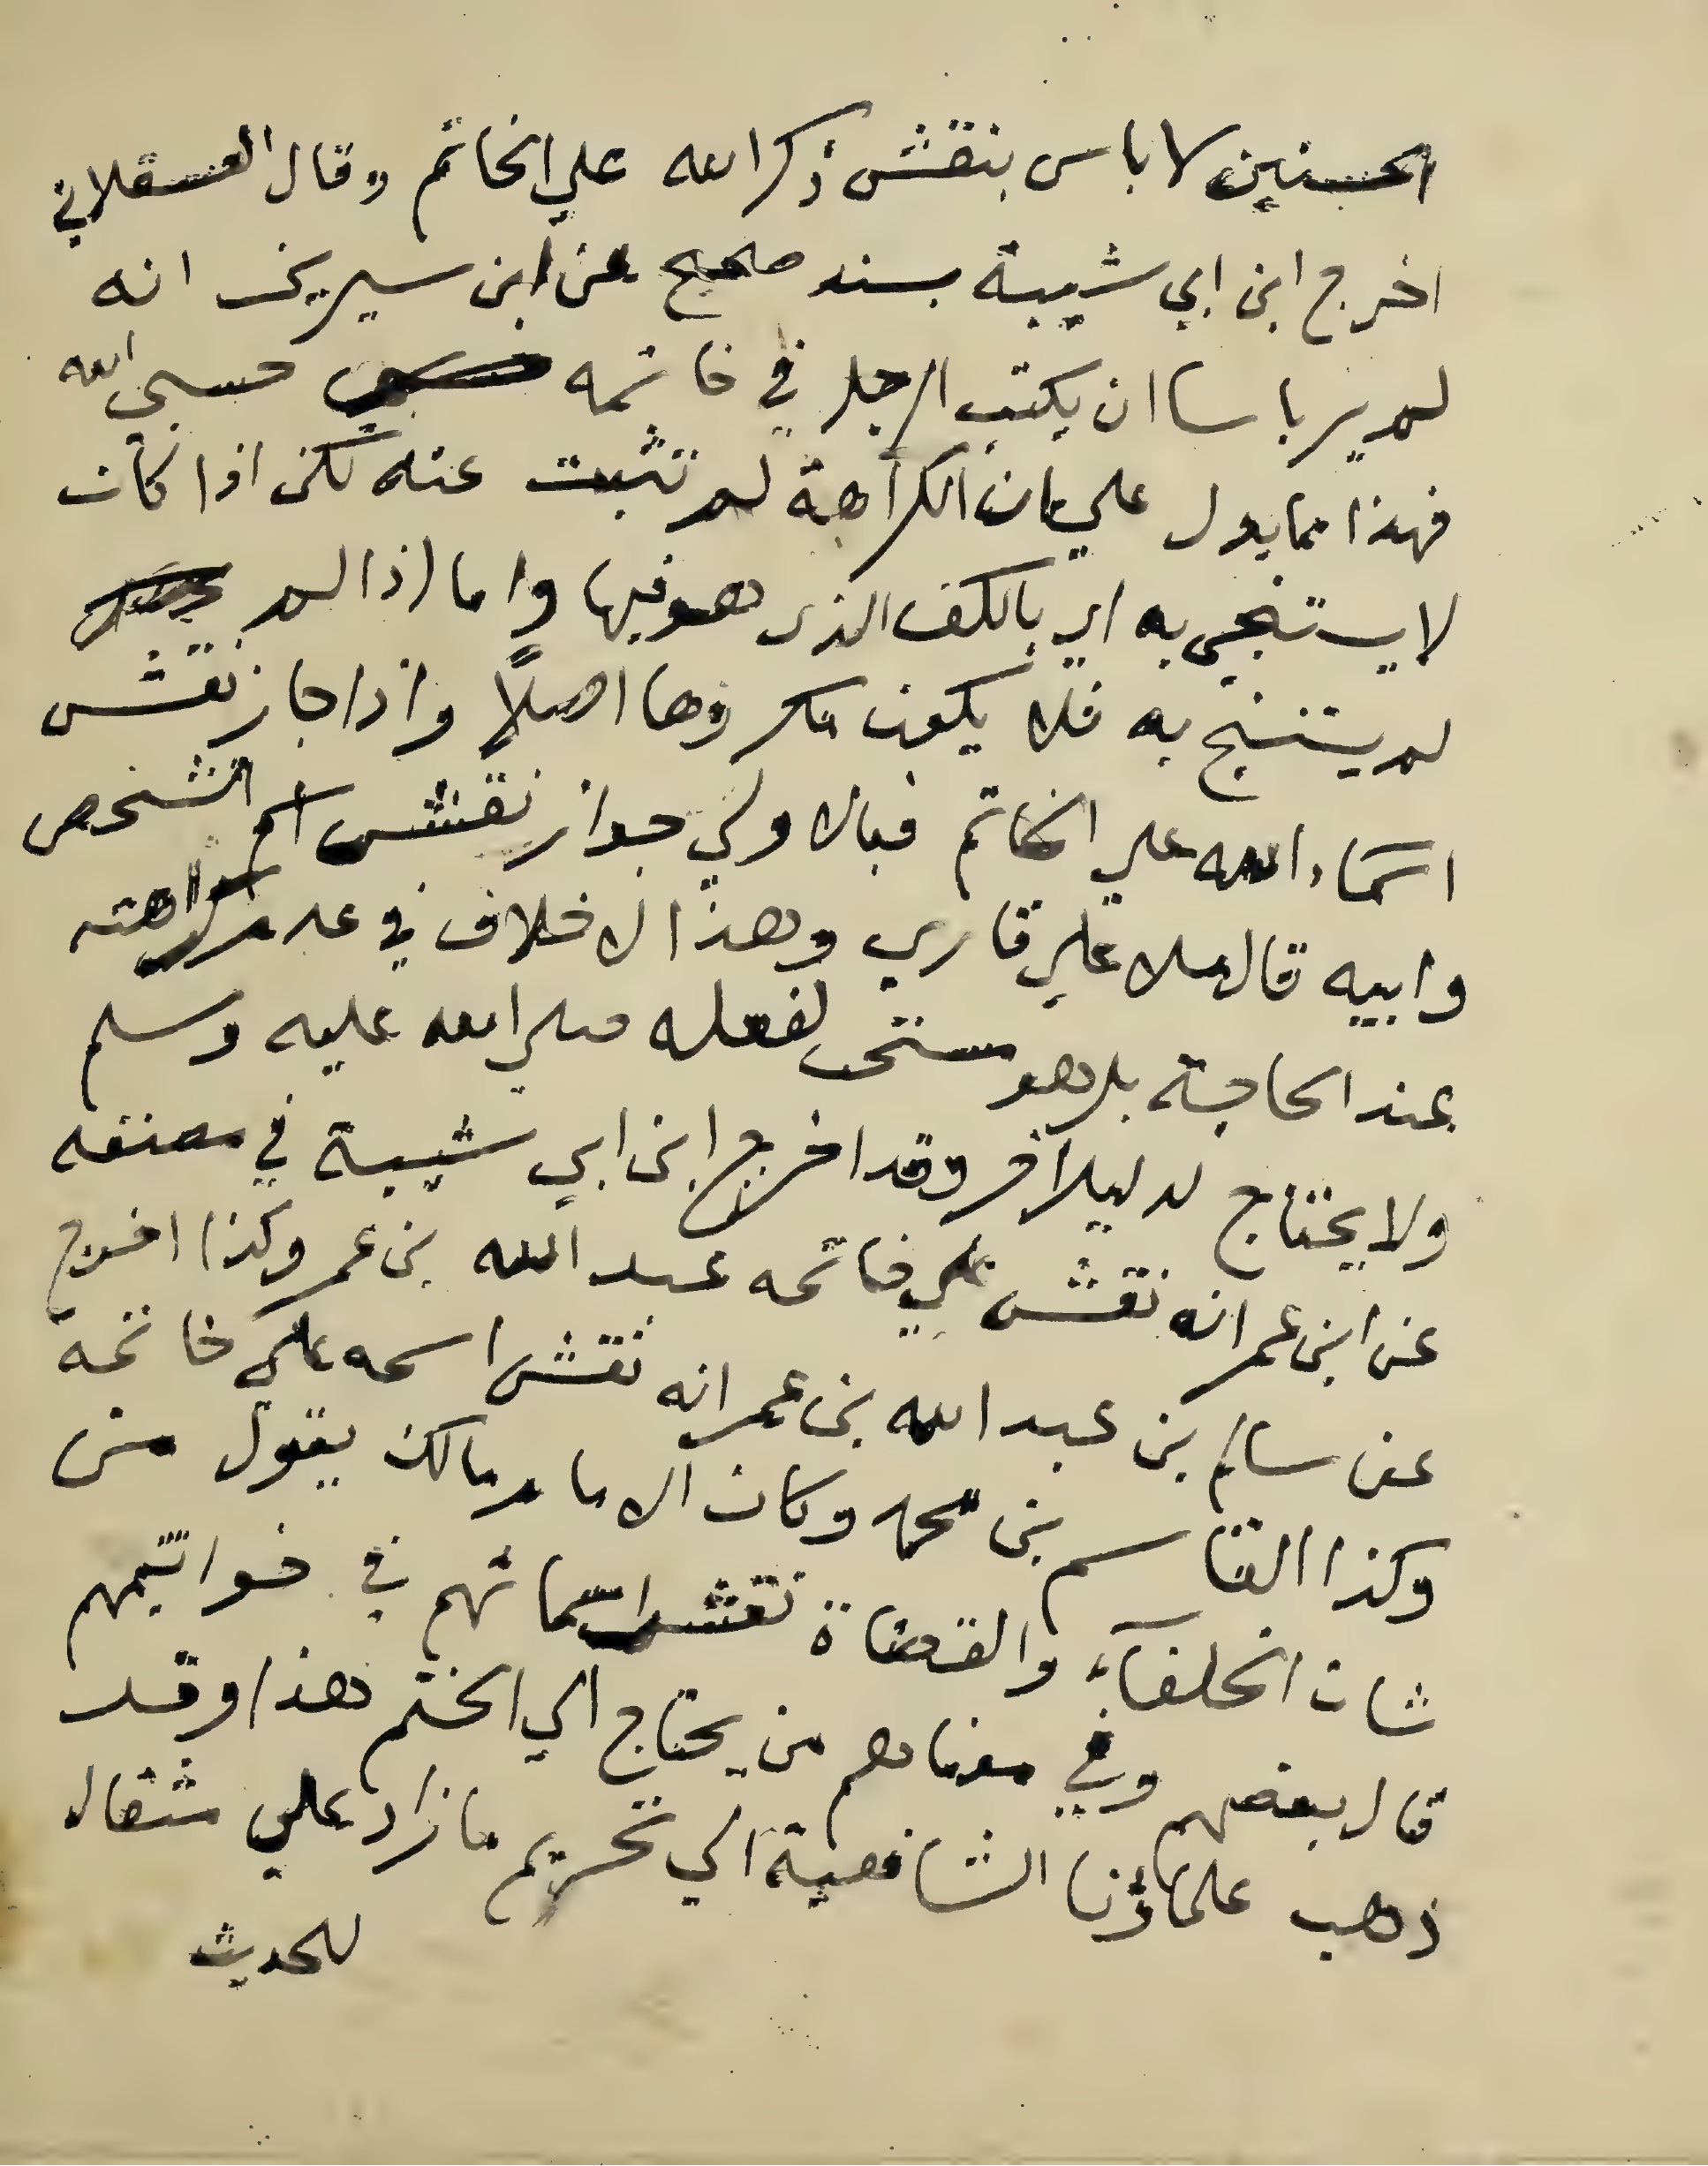 الحسنين لا باس بنقش ذكر الله علي الخاتم وقال العسقلاني
اخرج ابن ابي شيبة بسند صحيح عن ابن سيرين انه
لم ير باسا ان يكتب الرجل في خاتمه حسبي الله
فهذا مما يدل علي ان الكراهة لم تثبت عنه لكن اذا كان
لا يستنجي به اي بالكف الذي هو فيها واما اذا لم
لم يستنج به فلا يكون مكروها اصلاً واذا جاز نقش
اسماء الله علي الخاتم فبالاولي جواز نقش اسم الشخص
وابيه قال ملا علي قاري وهذا لا خلاف في عدم كراهته
عند الحاجة بل هو مستحب لفعله صلي الله عليه وسلم
ولا يحتاج لدليل اخر وقد اخرج ابن ابي شيبة في مصنفه
عن ابن عمر انه نقش علي خاتمه عبد الله بن عمر وكذا اخرج
عن سالم بن عبد الله بن عمر انه نقش اسمه علي خاتمه
وكذا القاسم بن محمد وكان الامام مالك يقول من
شان الخلفآء والقضاة نقش اسمائهم في خواتيمهم
قال بعضهم وفي معناهم من يحتاج الي الختم هذا وقد
ذهب علماؤنا الشافعية الي تحريم ما زاد علي مثقال
للحديث